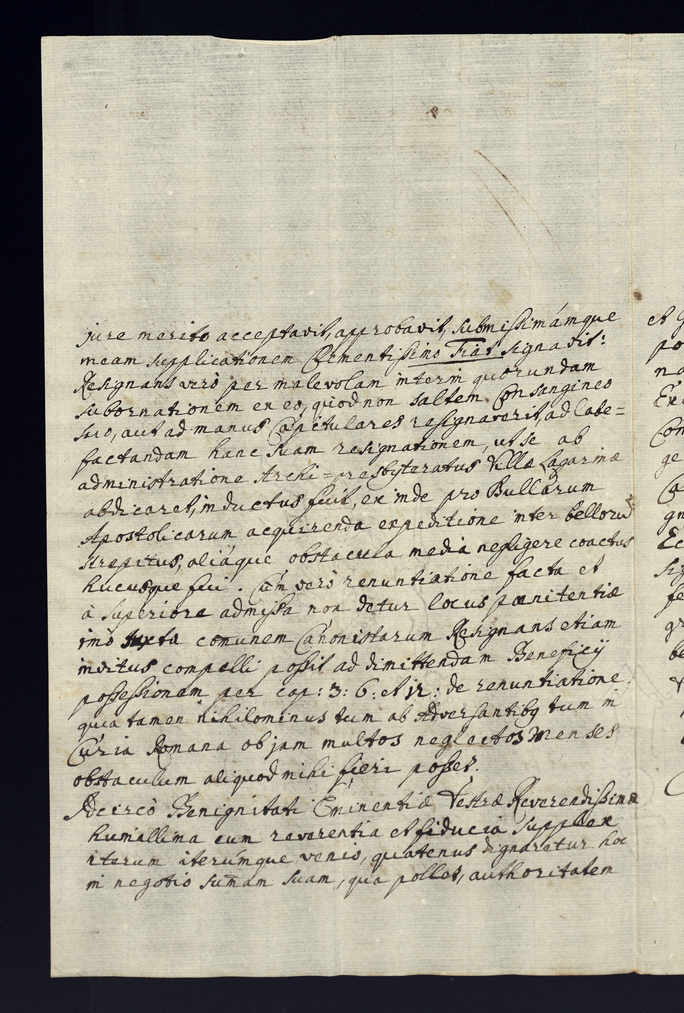 jure merito acceptavit, approbavit, submissimámque
meam supplicationem Clementissimo Fiat signavit:
Resignans verò per malevolam interim quorundam
subornationem ex eo, quod non saltem Consangineo
suo, aut ad manus Capitulares resignaverit, ad labe=
factandam hanc suam resignationem, ut se ab
administratione Archi=presbiteratus Villæ Lagarinæ
abdicaret, inductus fuit, ex inde pro Bullarum
Apostolicarum acquirenda expeditione inter bellorum
strepitus, aliáque obstacula media negligere coactus
hucusque fui. Cùm verò renuntiatione facta et
à Superiore admissa non detur locus pœnitentiæ
imò juxta comunem Canonistarum Resignans etiam
invitus compelli possit ad dimittendam Beneficij
possessionem per cap: 3: 6: et 12: de renuntiatione:
quia tamen nihilominus tum ab Adversantibq tum in
Curia Romana ob jam multos neglectos Menses
obstaculum aliquod mihi fieri posset.
Idcircò Benignitati Eminentiæ Vestræ Reverendissimæ
humillima cum reverentia et fiducia supplex
iterum iterúmque venio, quatenus dignaretur hoc
in negotio sumam suam, qua pollet, authoritatem